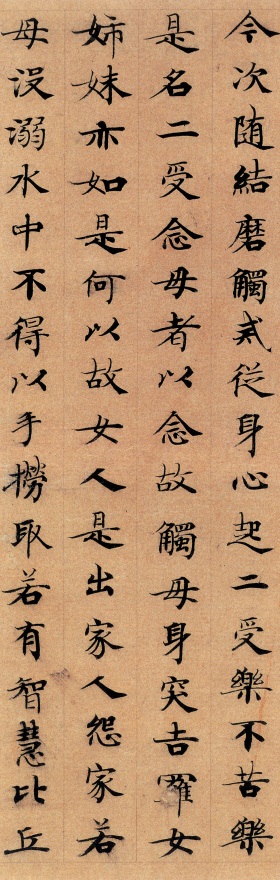 今次随結磨觸戒従身心起二受樂不苦樂
是名二受念母者以念故觸母身突吉羅女
姊妹亦如是何以故女人是出家人怨家若
母没溺水中不得以手撈取若有智慧比丘